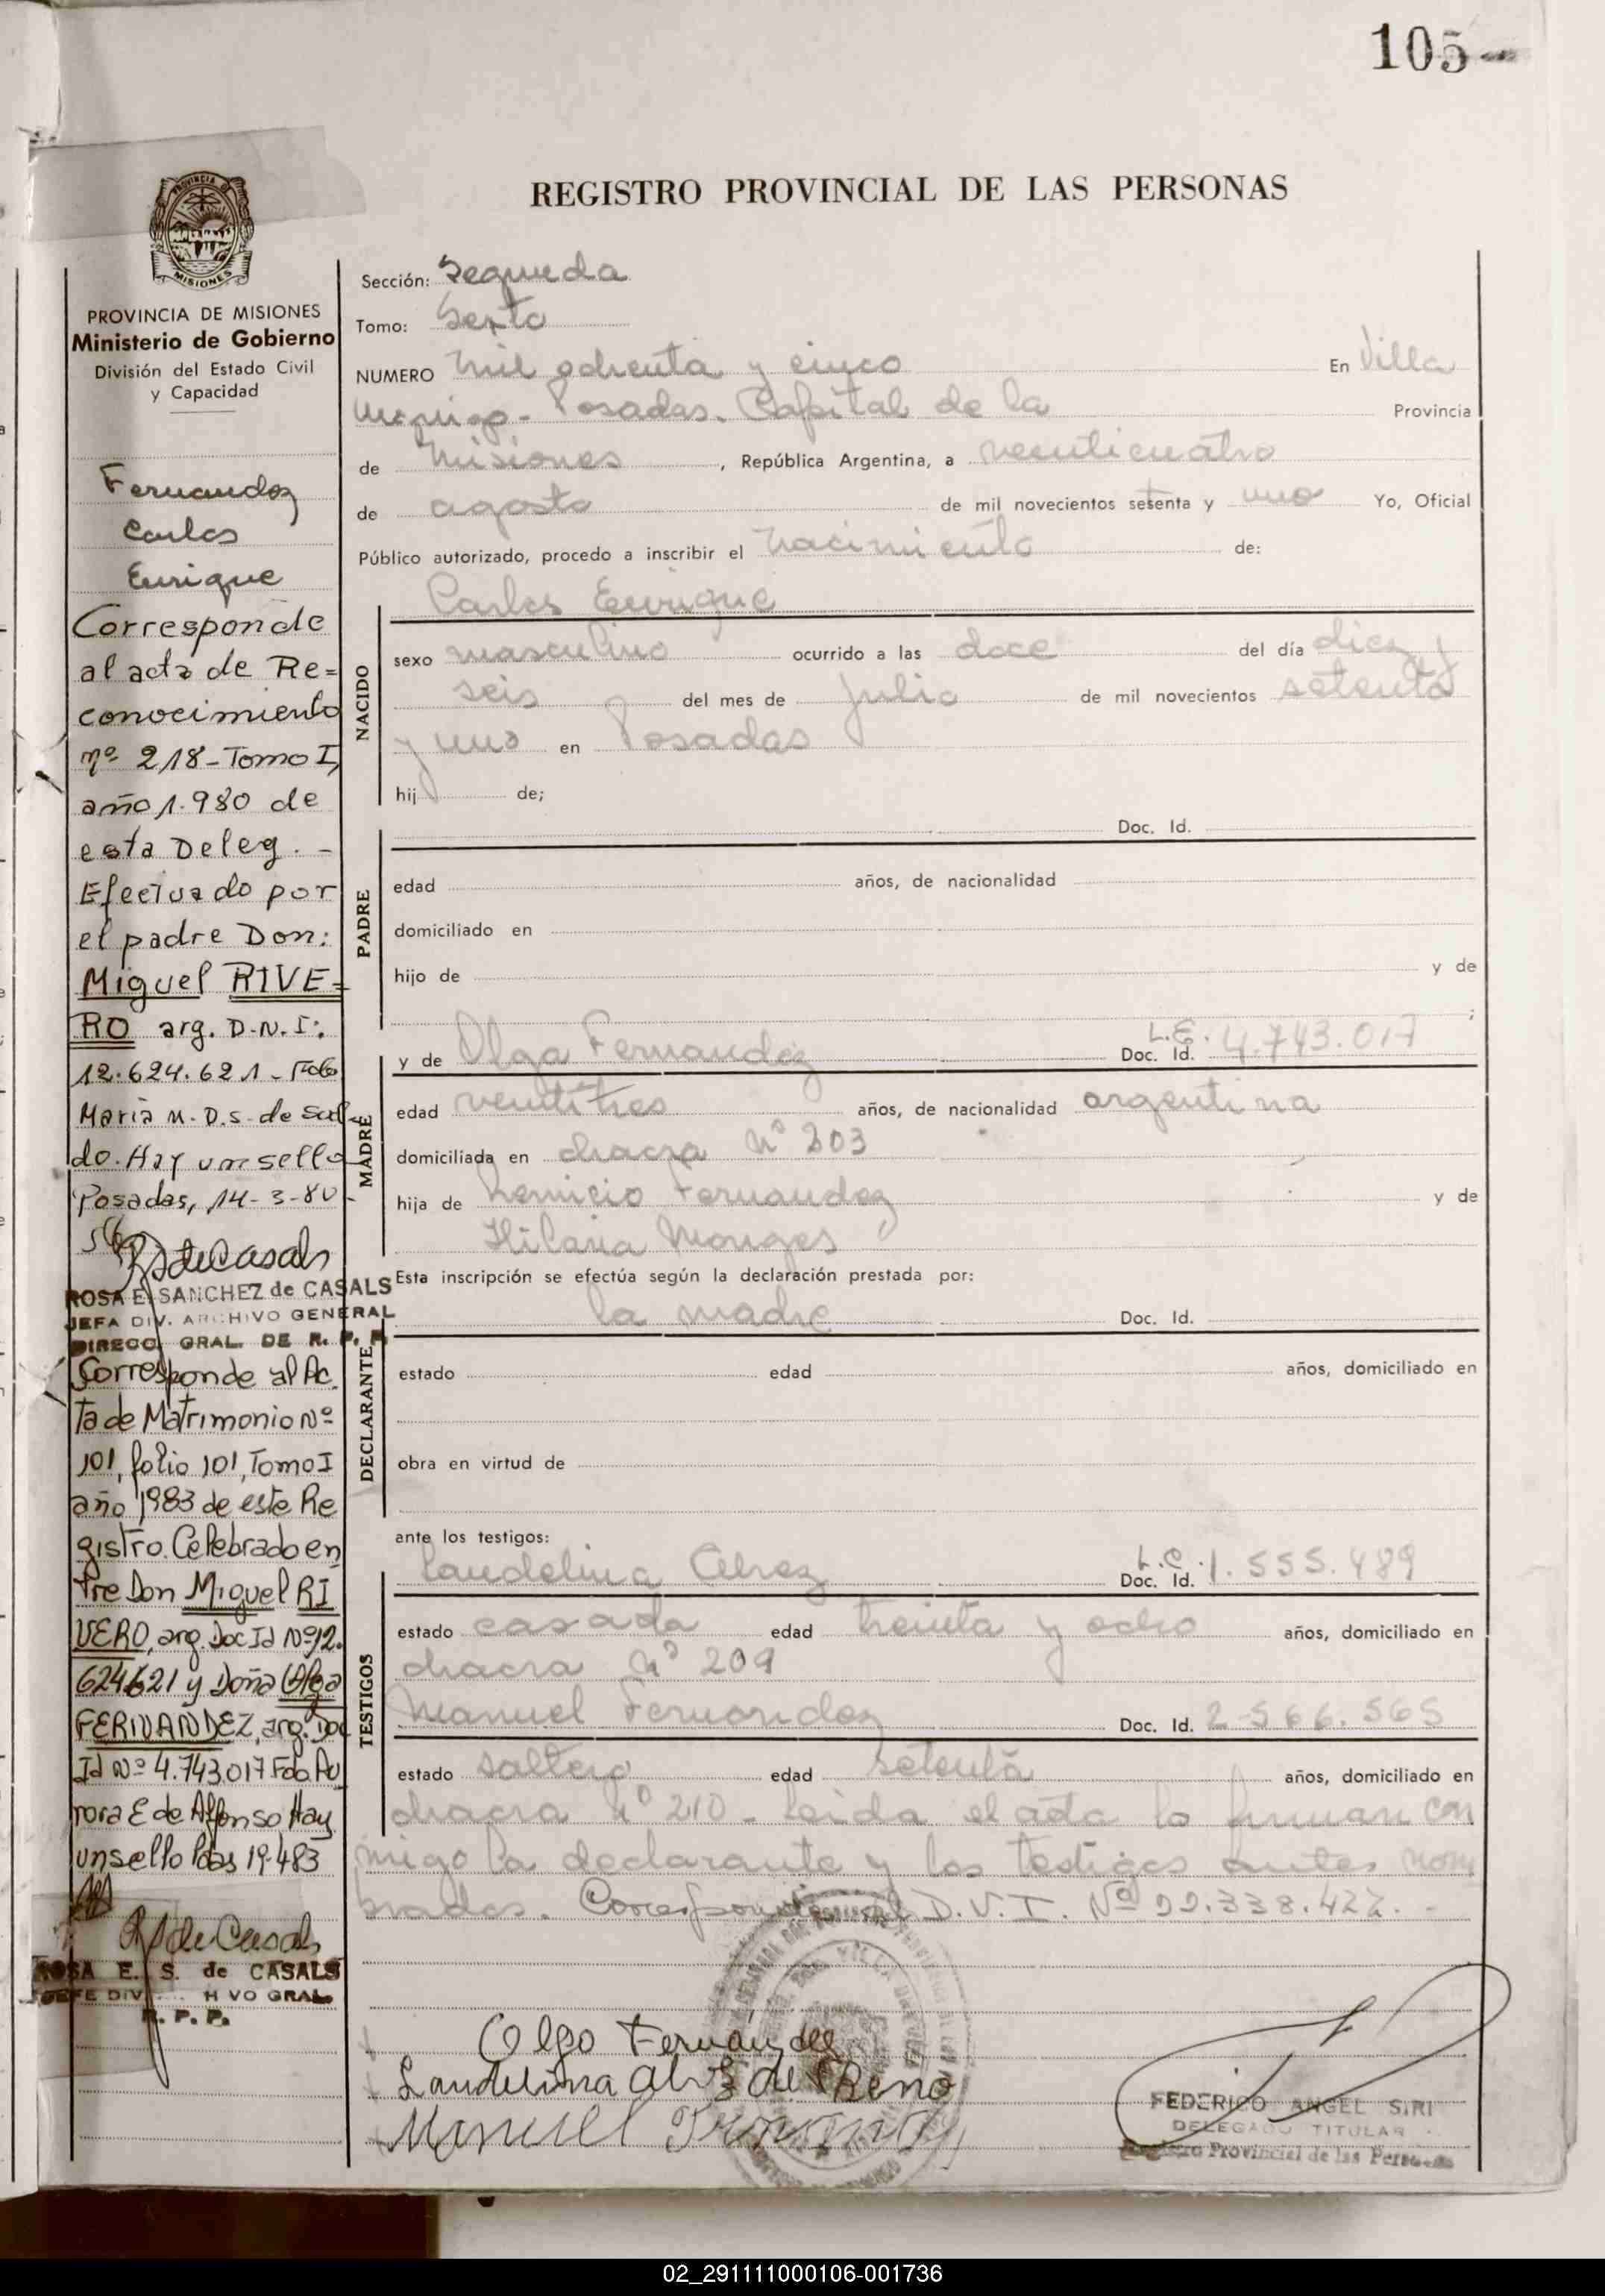 105-
REGISTRO PROVINCIAL DE LAS PERSONAS
PROVINCIA DE
MISIONES
PROVINCIA DE MISIONES
Ministerio de Gobierno
División del Estado Civil
y Capacidad
Fernandez
Carlos
Enrique
Corresponde
al acta de Re=
conocimiento
nº 218-Tomo I,
año 1.980 de
esta Deleg. -
Efectuado por
el padre Don:
Miguel RIVE-
RO arg. D.N.I:
12.624.621 - Fdo
Maria M. D. S. de Sal-
do. Hay un sello
Posadas, 14-3-80-
RS de Casals
ROSA E. SANCHEZ de CASALS
JEFA DIV. ARCHIVO GENERAL
DIRECC. GRAL. DE R. P. P.
Corresponde al Ac.
ta de Matrimonio Nº
101, folio 101, Tomo I
año 1983 de este Re
gistro. Celebrado en
tre Don Miguel RI
VERO, arg. Doc Id Nº 12.
624621 y Doña Olga
FERNANDEZ, arg. Doc
Id Nº 4.743.017 Fdo. Au
rora E de Alfonso Hay
un sello Pdas 19-4-83
RS de Casals
ROSA E. S. de CASALS
JEFE DIV. H VO GRAL.
R. P. P.
Sección: Segunda
Tomo: Sexto
NUMERO mil ochenta y cinco En Villa
Urquiza - Posadas. Capital de la Provincia
de Misiones, República Argentina, a veinticuatro
de agosto de mil novecientos setenta y uno Yo, Oficial
Público autorizado, procedo a inscribir el nacimiento de:
Carlos Enrique
NACIDO
sexo masculino ocurrido a las doce del día diez y
seis del mes de julio de mil novecientos setenta
y uno en Posadas
hij de;
Doc. Id.
PADRE
edad años, de nacionalidad
domiciliado en
hijo de y de
;
MADRE
y de Olga Fernandez Doc. Id. L.E. 4.743.017
edad veintitres años, de nacionalidad argentina
domiciliada en chacra Nº 203
hija de Fernandez y de
Hilaria Monges
Esta inscripción se efectúa según la declaración prestada por:
la madre Doc. Id.
DECLARANTE
estado edad años, domiciliado en
obra en virtud de
ante los testigos:
Laudelina Alvez Doc. Id. L.C. 1.555.489
TESTIGOS
estado casada edad treinta y ocho años, domiciliado en
chacra Nº 209
Manuel Fernandez Doc. Id. 2-566.565
estado soltero edad setenta años, domiciliado en
chacra Nº 210 - Leida el acta la firman con
migo la declarante y los testigos antes nom
brados. Corresponde al D.V.I. Nº 22.338.422. -
Olga Fernández
Laudelina Alvez de
Manuel
FEDERICO ANGEL SIRI
DELEGADO TITULAR
Registro Provincial de las Personas
02_291111000106-001736